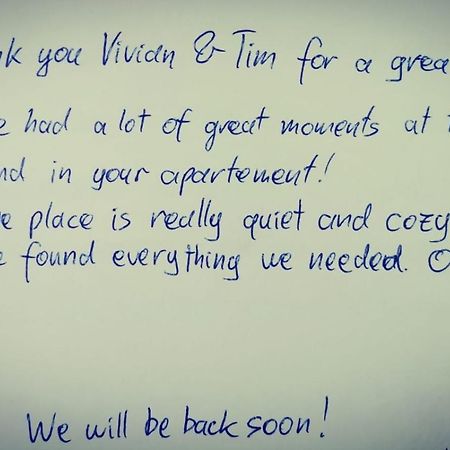 nk you Vivian & Tim for a grea
e had a lot of great moments at t
nd in your apartement!
e place is really quiet and cozy
e found everything we needed. O
We will be back soon!